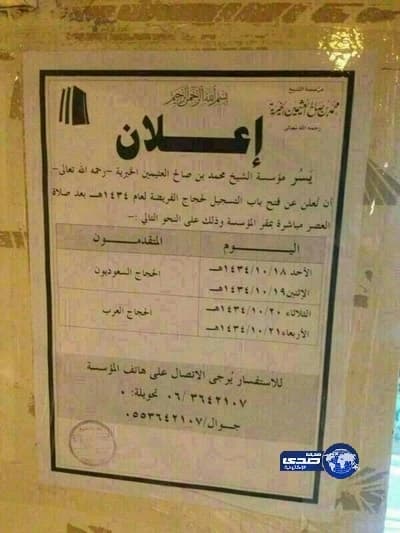 مؤسسة الشيخ
محمد بن صالح العثيمين الخيرية
رحمه الله تعالى
بسم الله الرحمن الرحيم
إعلان
يَسُر مؤسسة الشيخ محمد بن صالح العثيمين الخيرية -رحمه الله تعالى-
أن تُعلن عن فتح باب التسجيل لحجاج الفريضة لعام ١٤٣٤هـ بعد صلاة
العصر مباشرة بمقر المؤسسة وذلك على النحو التالي :-
اليوم المتقدمون
الأحد ١٤٣٤/١٠/١٨هـ الحجاج السعوديون
الإثنين ١٤٣٤/١٠/١٩هـ
الثلاثاء ١٤٣٤/١٠/٢٠هـ الحجاج العرب
الأربعاء ١٤٣٤/١٠/٢١هـ
للاستفسار يُرجى الاتصال على هاتف المؤسسة
٠٦/٣٦٤٢١٠٧ تحويلة: ٠
جوال/٠٥٥٣٦٤٢١٠٧
صحيفة
صدى
الإلكترونية